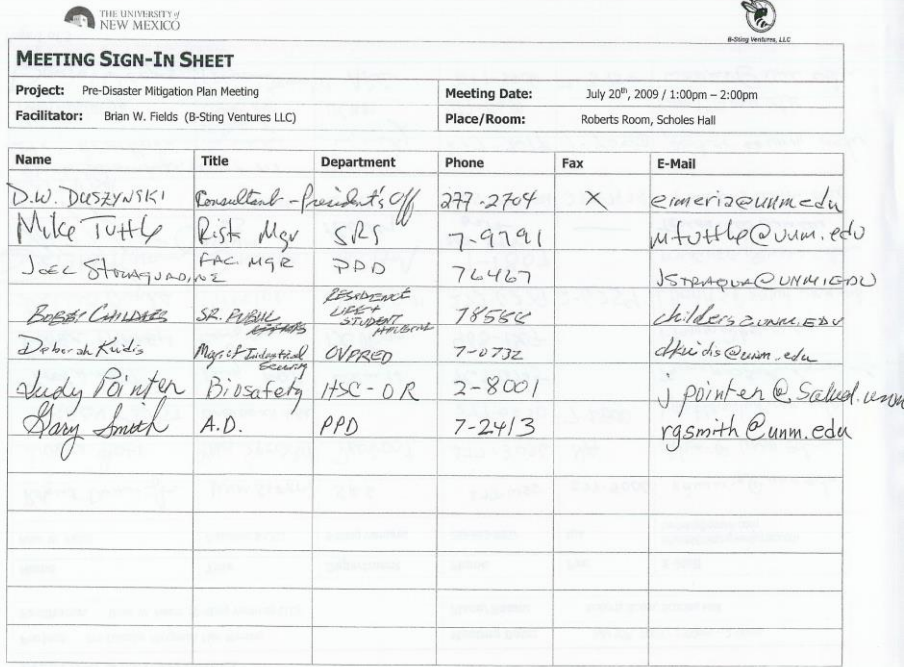 THE UNIVERSITY of
NEW MEXICO
B-Sting Ventures, LLC
MEETING SIGN-IN SHEET
Project: Pre-Disaster Mitigation Plan Meeting Meeting Date: July 20th, 2009 / 1:00pm – 2:00pm
Facilitator: Brian W. Fields (B-Sting Ventures LLC) Place/Room: Roberts Room, Scholes Hall
Name Title Department Phone Fax E-Mail
D.W. DUSZYNSKI Consultant - President's Off 277-2704 X eimeria@unm.edu
Mike Tuttle Risk Mgr SRS 7-9791 mtuttle@unm.edu
JOEL FAC. MGR PPD 76467
BOBBY CHILDERS SR. PUBLIC RESIDENCE LIFE + STUDENT childers@UNM.EDU
Deborah Kuidis Mgr of Industrial Security OVPRED 7-0732 dkuidis@unm.edu
Judy Pointer Biosafety HSC-OR 2-8001 jpointer@salud.unm
Gary Smith A.D. PPD 7-2413 rgsmith@unm.edu